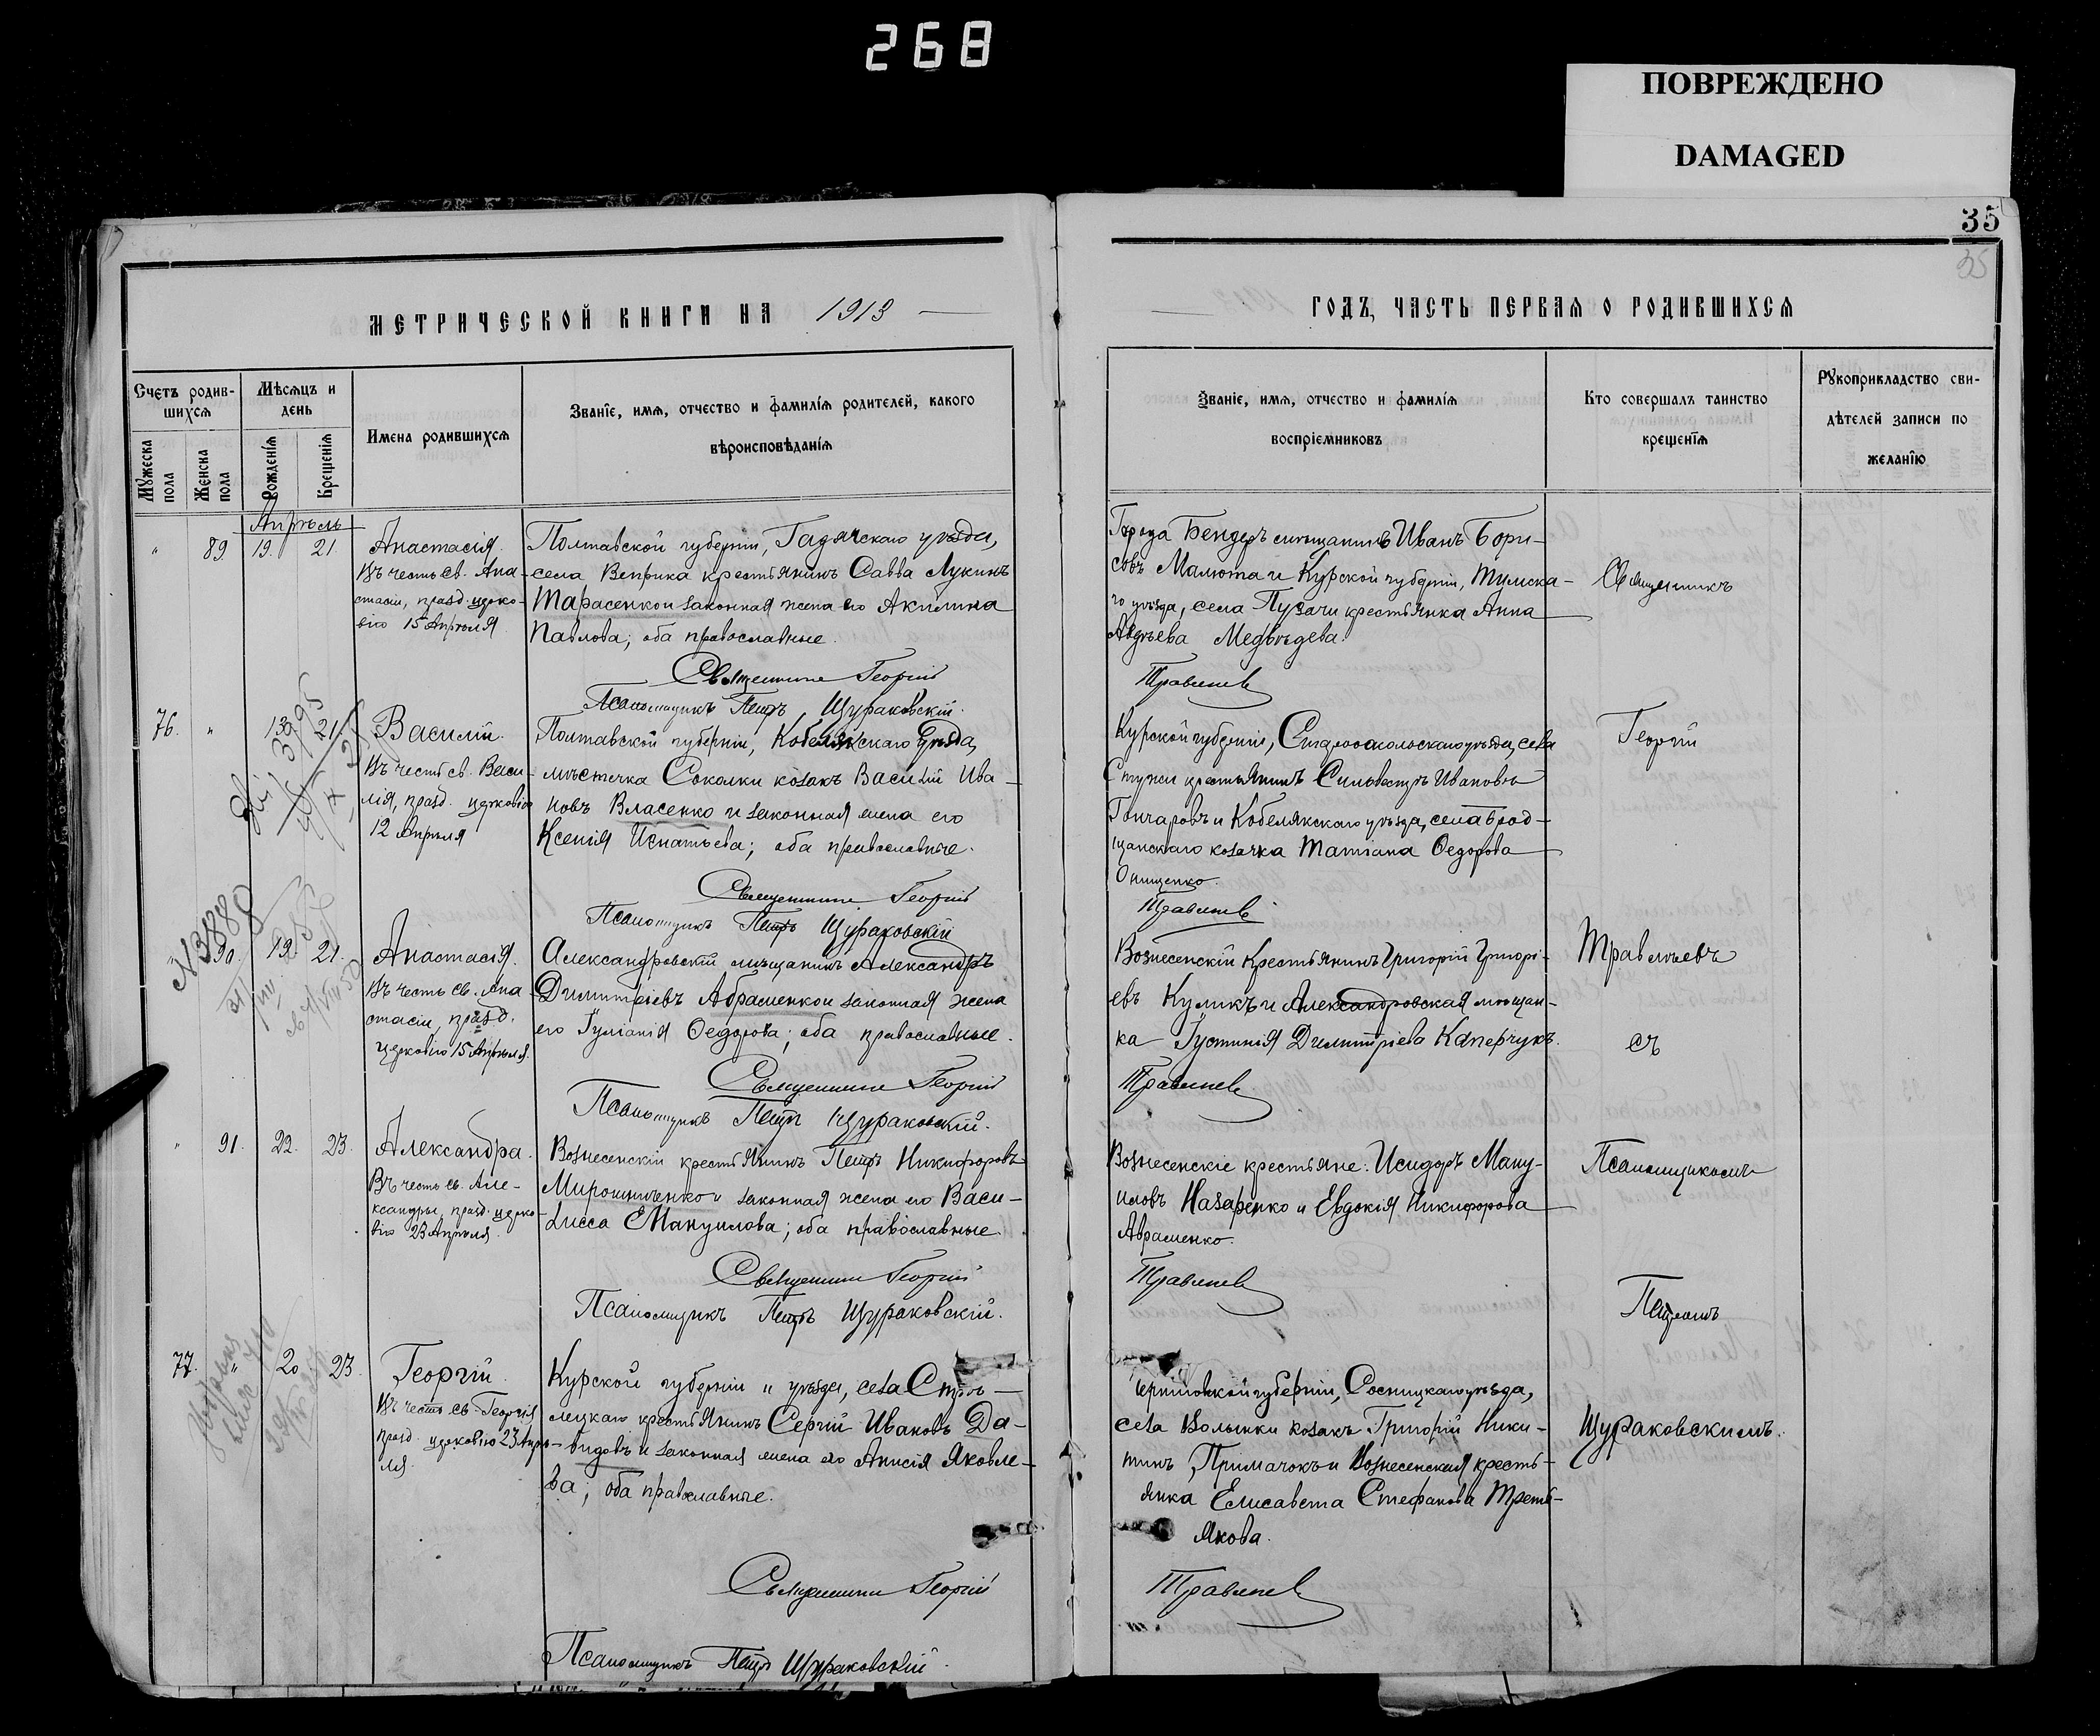 268
ПОВРЕЖДЕНО
DAMAGED
35
35
МЕТРИЧЕСКОЙ КНИГИ НА 1913
ГОДЪ, ЧАСТЬ ПЕРВАЯ О РОДИВШИХСЯ
Счетъ родив-
шихся
Мужеска
пола
Женска
пола
Мѣсяцъ и
день
Рожденія
Крещенія
Имена родившихся
Званіе, имя, отчество и фамилія родителей, какого
вѣроисповѣданія
Званіе, имя, отчество и фамилія
воспріемниковъ
Кто совершалъ таинство
крещенія
Рукоприкладство сви-
дѣтелей записи по
желанію
Апрѣль
" 89 19. 21.
Анастасія.
Въ честь св. Ана-
стасіи, празд. церко-
вію 15 Апрѣля
Полтавской губерніи, Гадячскаго уѣзда,
села Веприка крестьянинъ Савва Лукинъ
Тарасенко и законная жена его Акилина
Павлова; оба православные.
Священникъ Георгій
Псаломщикъ Петръ Щураковскій.
Города Бендеръ мѣщанинъ Иванъ Бори-
совъ Малюта и Курской губерніи, Тимска-
го уѣзда, села Пузачи крестьянка Анна
Авдѣева Медвѣдева.
Травлеевъ
Священникъ
76. " 13 21
Василій.
Въ честь св. Васи-
лія, празд. церковію
12 Апрѣля
Полтавской губерніи, Кобелякскаго уѣзда,
мѣстечка Соколки козакъ Василій Ива-
новъ Власенко и законная жена его
Ксенія Игнатьева; оба православные.
Священникъ Георгій
Псаломщикъ Петръ Щураковскій
Курской губерніи, Старооскольскаго уѣзда, села
крестьянинъ Сильвестръ Ивановъ
Гончаровъ и Кобелякскаго уѣзда, села Брод-
щанскаго козачка Татіана Ѳедорова
Онищенко.
Травлеевъ
Георгій
№3880
" 90. 19. 21.
Анастасія.
Въ честь св. Ана-
стасіи, празд.
церковію 15 Апрѣля.
Александровскій мѣщанинъ Александръ
Димитріевъ Абраменко и законная жена
его Іуліанія Ѳедорова; оба православные.
Священникъ Георгій
Псаломщикъ Петръ Щураковскій.
Вознесенскій крестьянинъ Григорій Григорі-
евъ Куликъ и Александровская мѣщан-
ка Іустинія Димитріева Каперчукъ.
Травлеевъ
Травлѣевъ
съ
" 91. 22. 23.
Александра.
Въ честь св. Але-
ксандры, празд. церко-
вію 23 Апрѣля.
Вознесенскій крестьянинъ Петръ Никифоровъ
Мирошниченко и законная жена его Васи-
лисса Мануилова; оба православные.
Священникъ Георгій
Псаломщикъ Петръ Щураковскій.
Вознесенскіе крестьяне: Исидоръ Ману-
иловъ Назаренко и Евдокія Никифорова
Авраменко.
Травлеевъ
Псаломщикомъ
Петромъ
77. " 20 23
Георгій.
Въ честь св. Георгія
празд. церковію 23 Апрѣ-
ля.
Курской губерніи и уѣзда, села Стрѣ-
лецкаго крестьянинъ Сергій Ивановъ Да-
видовъ и законная жена его Анисія Яковле-
ва; оба православные.
Священникъ Георгій
Псаломщикъ Петръ Щураковскій.
Черниговской губерніи, Сосницкаго уѣзда,
села Волынки козакъ Григорій Ники-
тинъ Примачокъ и Вознесенская кресть-
янка Елисавета Стефанова Треть-
якова.
Травлеевъ
Щураковскимъ.